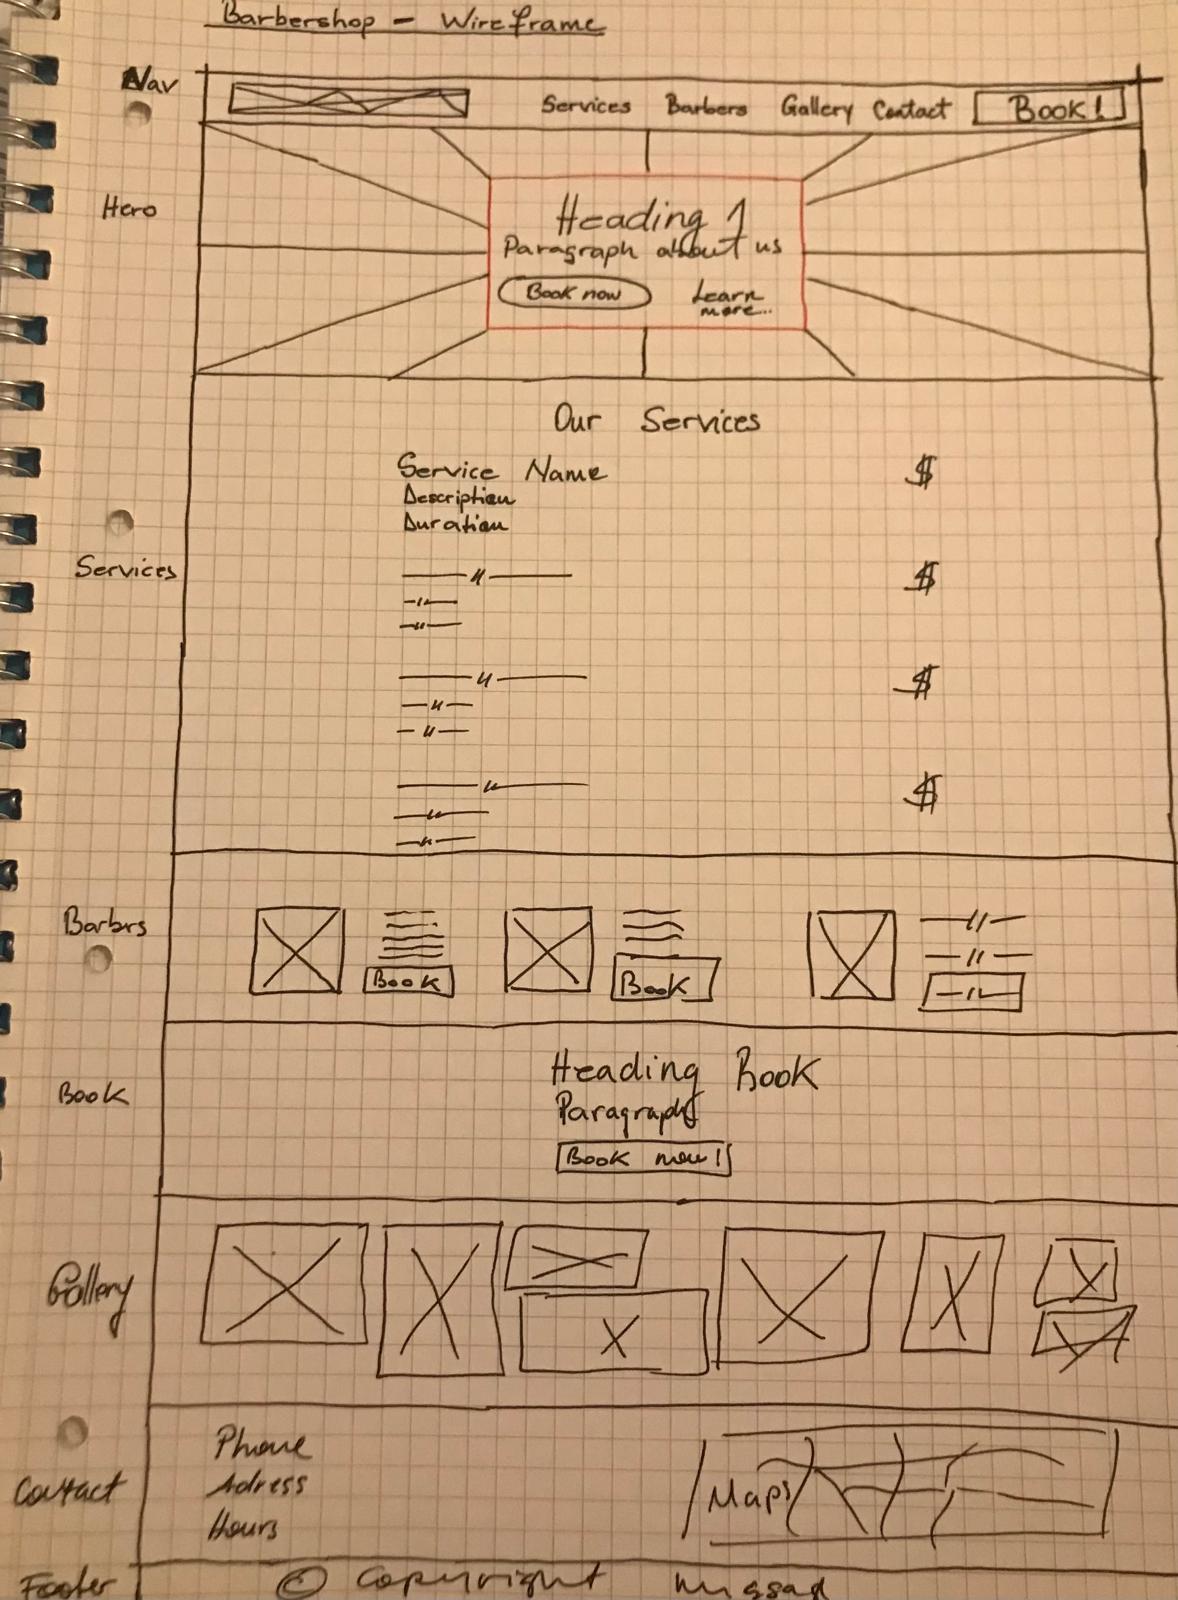 Barbershop - Wireframe
Nav
Services Barbers Gallery Contact Book!
Hero
Heading 1
Paragraph about us
Book now
Learn
more...
Our Services
Service Name $
Description
Duration
Services
$
$
$
Barbrs
Book
Book
Book
Heading Book
Paragraph
Book now!
Gallery
Contact
Phone
Adress
Hours
Maps
Footer
© Copyright